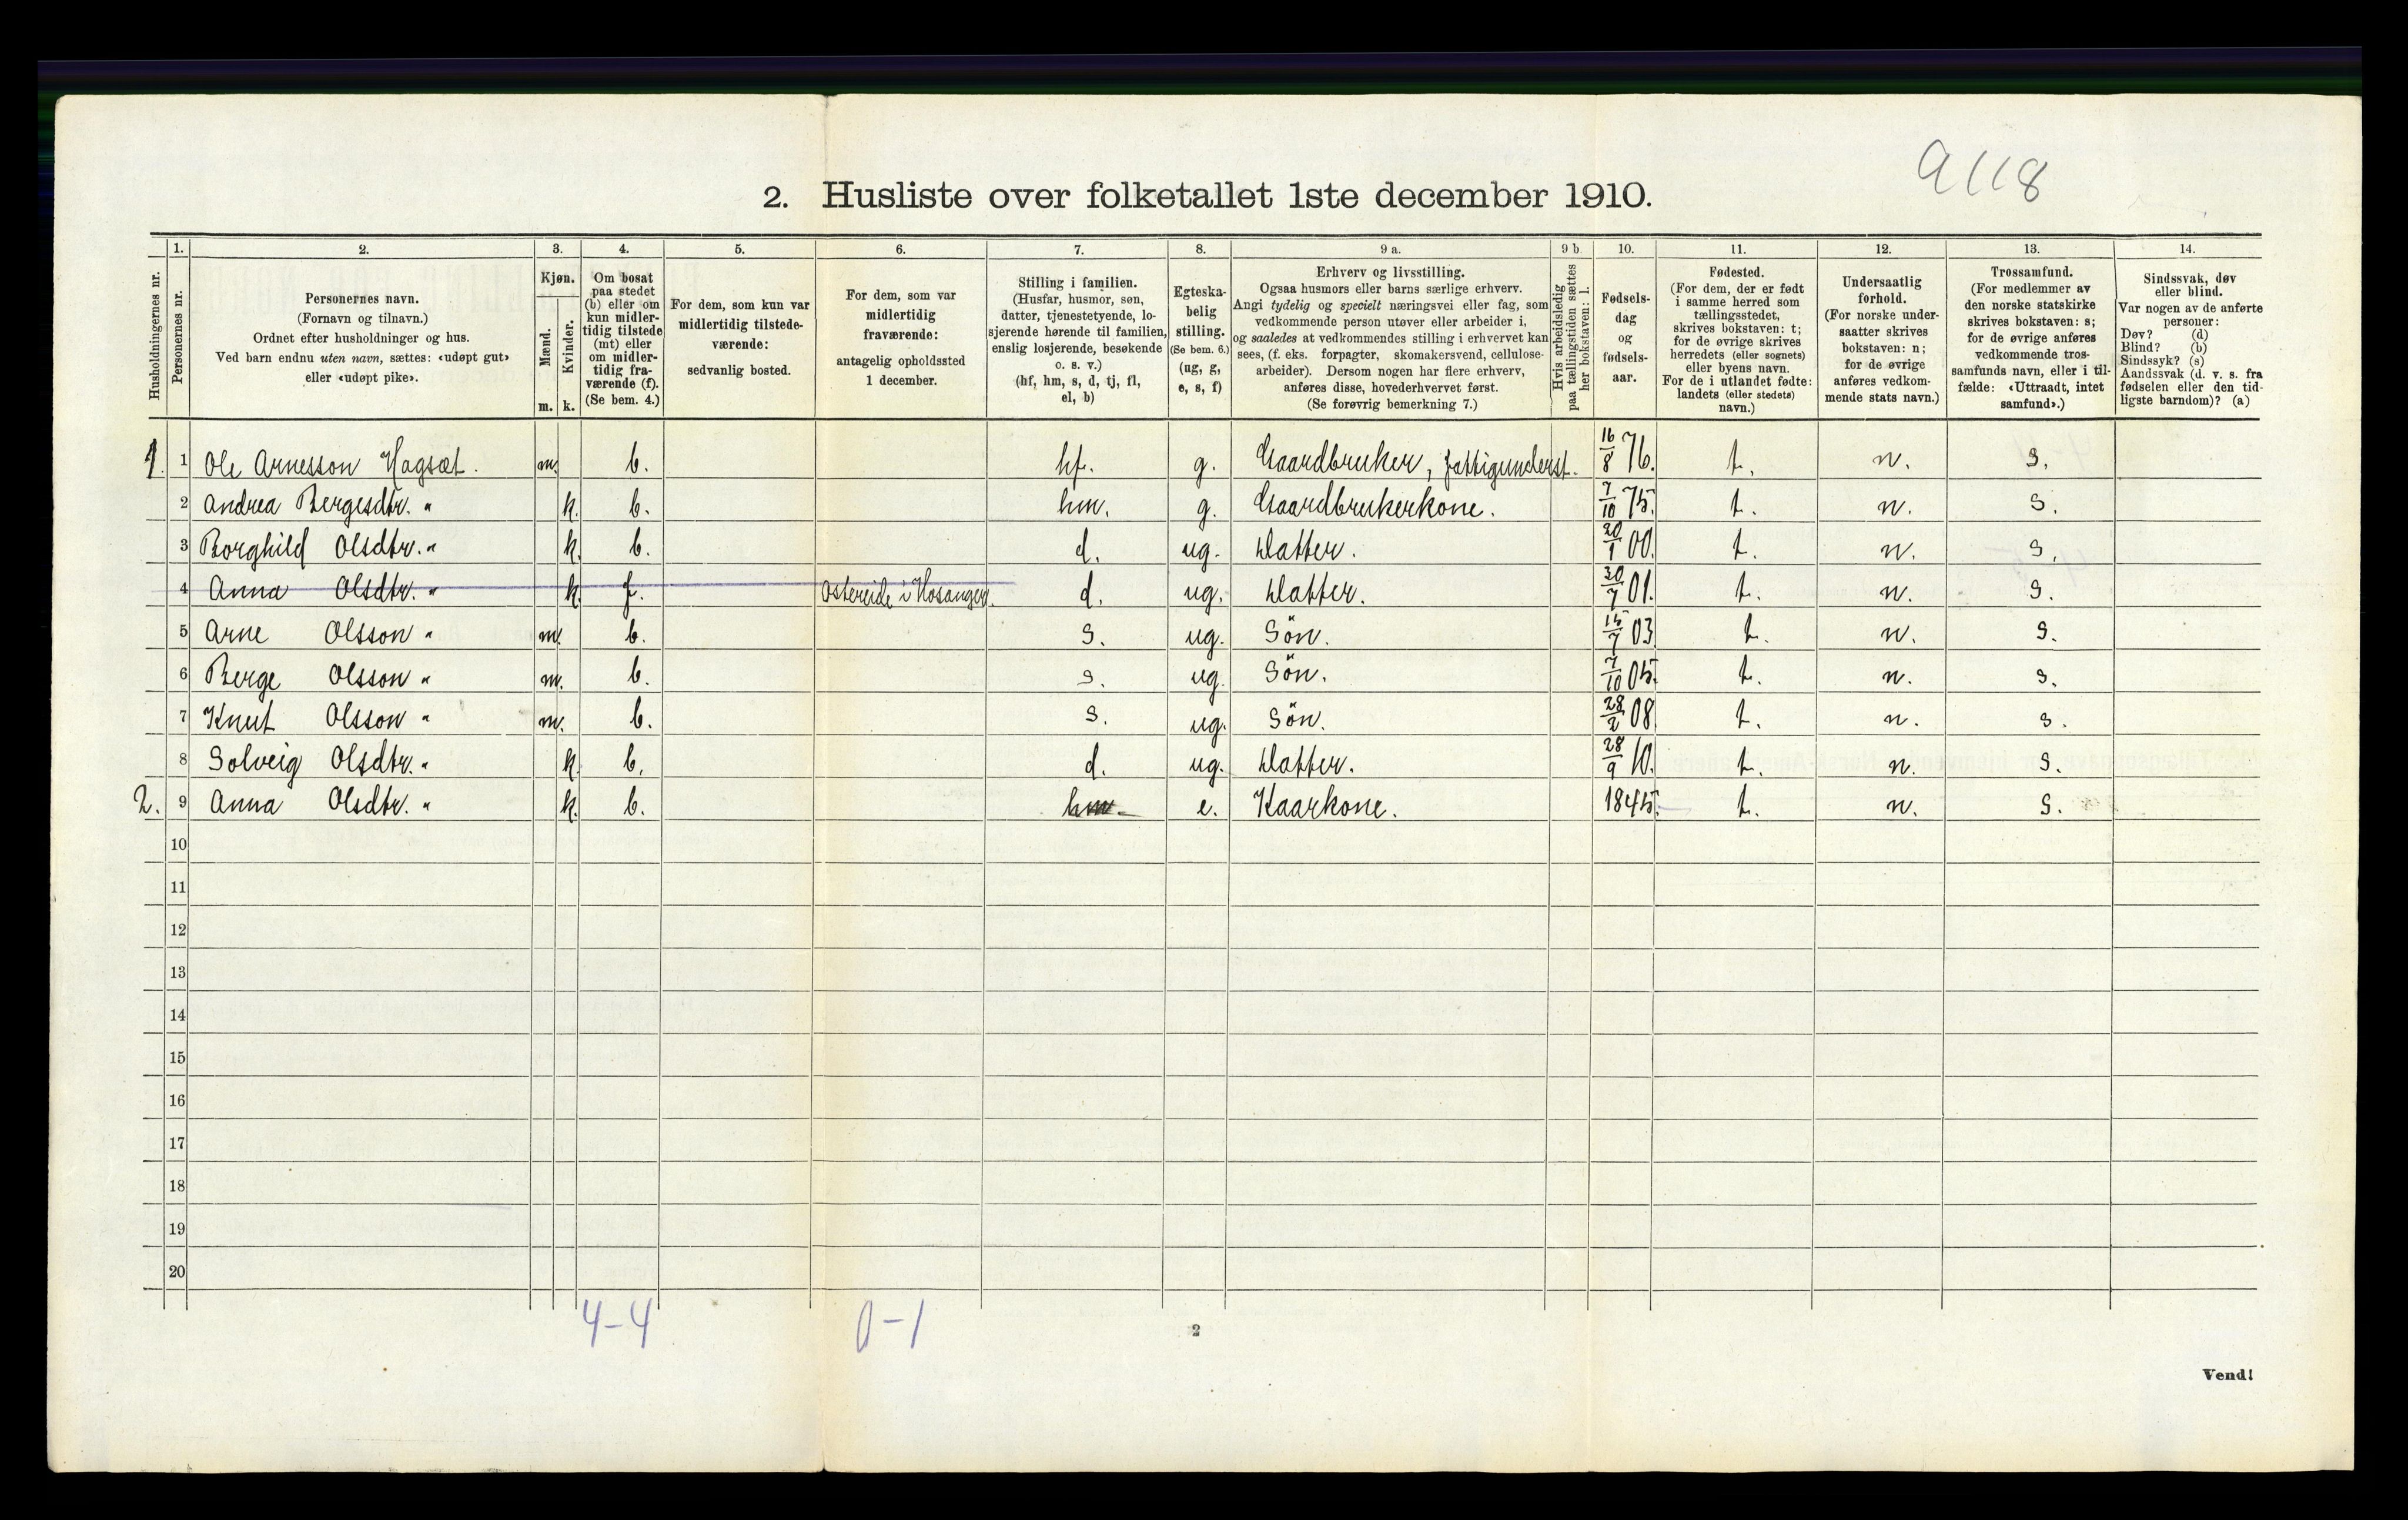 9118
2. Husliste over folketallet 1ste december 1910.
1. 2. 3. 4. 5. 6. 7. 8. 9 a. 9 b 10. 11. 12. 13. 14.
Husholdningernes nr.
Personernes nr.
Personernes navn.
(Fornavn og tilnavn.)
Ordnet efter husholdninger og hus.
Ved barn endnu uten navn, sættes: «udøpt gut»
eller «udøpt pike».
Kjøn.
Mænd.
Kvinder.
m. k.
Om bosat
paa stedet
(b) eller om
kun midler-
tidig tilstede
(mt) eller
om midler-
tidig fra-
værende (f).
(Se bem. 4.)
For dem, som kun var
midlertidig tilstede-
værende:
sedvanlig bosted.
For dem, som var
midlertidig
fraværende:
antagelig opholdssted
1 december.
Stilling i familien.
(Husfar, husmor, søn,
datter, tjenestetyende, lo-
sjerende hørende til familien,
enslig losjerende, besøkende
o. s. v.)
(hf, hm, s, d, tj, fl,
el, b)
Egteska-
belig
stilling.
(Se bem. 6.)
(ug, g,
e, s, f)
Erhverv og livsstilling.
Ogsaa husmors eller barns særlige erhverv.
Angi tydelig og specielt næringsvei eller fag, som
vedkommende person utøver eller arbeider i,
og saaledes at vedkommendes stilling i erhvervet kan
sees, (f. eks. forpagter, skomakersvend, cellulose-
arbeider). Dersom nogen har flere erhverv,
anføres disse, hovederhvervet først.
(Se forøvrig bemerkning 7.)
Hvis arbeidsledig
paa tællingstiden sættes
her bokstaven: l.
Fødsels-
dag
og
fødsels-
aar.
Fødested.
(For dem, der er født
i samme herred som
tællingsstedet,
skrives bokstaven: t;
for de øvrige skrives
herredets (eller sognets)
eller byens navn.
For de i utlandet fødte:
landets (eller stedets)
navn.)
Undersaatlig
forhold.
(For norske under-
saatter skrives
bokstaven: n;
for de øvrige
anføres vedkom-
mende stats navn.)
Trossamfund.
(For medlemmer av
den norske statskirke
skrives bokstaven: s;
for de øvrige anføres
vedkommende tros-
samfunds navn, eller i til-
fælde: «Uttraadt, intet
samfund».)
Sindssvak, døv
eller blind.
Var nogen av de anførte
personer:
Døv? (d)
Blind? (b)
Sindssyk? (s)
Aandssvak (d. v. s. fra
fødselen eller den tid-
ligste barndom)? (a)
1. 1 Ole Arnesson Hagsæt. m. b. hf. g. Gaardbruker, fattigunderst. 16/8 76. t. n. s.
2 Andrea Bergesdtr. " k. b. hm. g. Gaardbrukerkone. 7/10 75. t. n. s.
3 Borghild Olsdtr. " k. b. d. ug. Datter. 20/1 00. t. n. s.
4 Anna Olsdtr. " k. f. Ostereide i Hosanger. d. ug. Datter. 30/7 01. t. n. s.
5 Arne Olsson " m. b. s. ug. Sön. 15/7 03 t. n. s.
6 Berge Olsson " m. b. s. ug. Sön. 7/10 05. t. n. s.
7 Knut Olsson " m. b. s. ug. Sön. 28/2 08. t. n. s.
8 Solveig Olsdtr. " k. b. d. ug. Datter. 28/9 10. t. n. s.
2. 9 Anna Olsdtr. " k. b. hm. e. Kaarkone. 1845. t. n. s.
10
11
12
13
14
15
16
17
18
19
20
4-4 0-1
2
Vend!